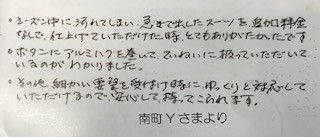 ・シーズン中に汚れてしまい、急ぎで出したスーツを、追加料金
なしで、仕上げていただけた時、とてもありがたかったです
・ボタンにアルミハクを巻いて、ていねいに、扱っていただいて
いるのがわかりました。
・その他細かい要望を受付け時に、ゆっくりと対応して
いただけるので、安心して、持ってこられます。
南町Yさまより